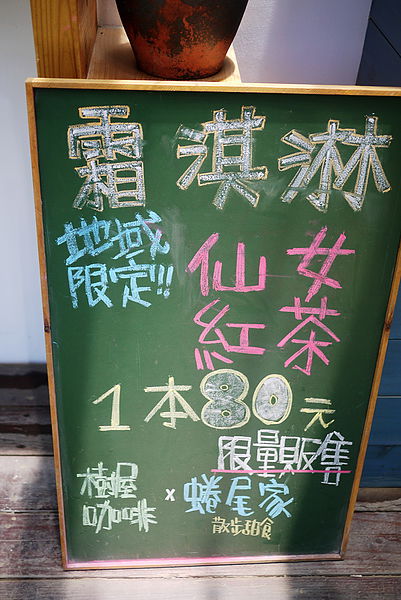 霜淇淋
地域
限定!!
仙女
紅茶
1本80元
限量販售
樹屋
咖啡
x
蜷尾家
散步甜食